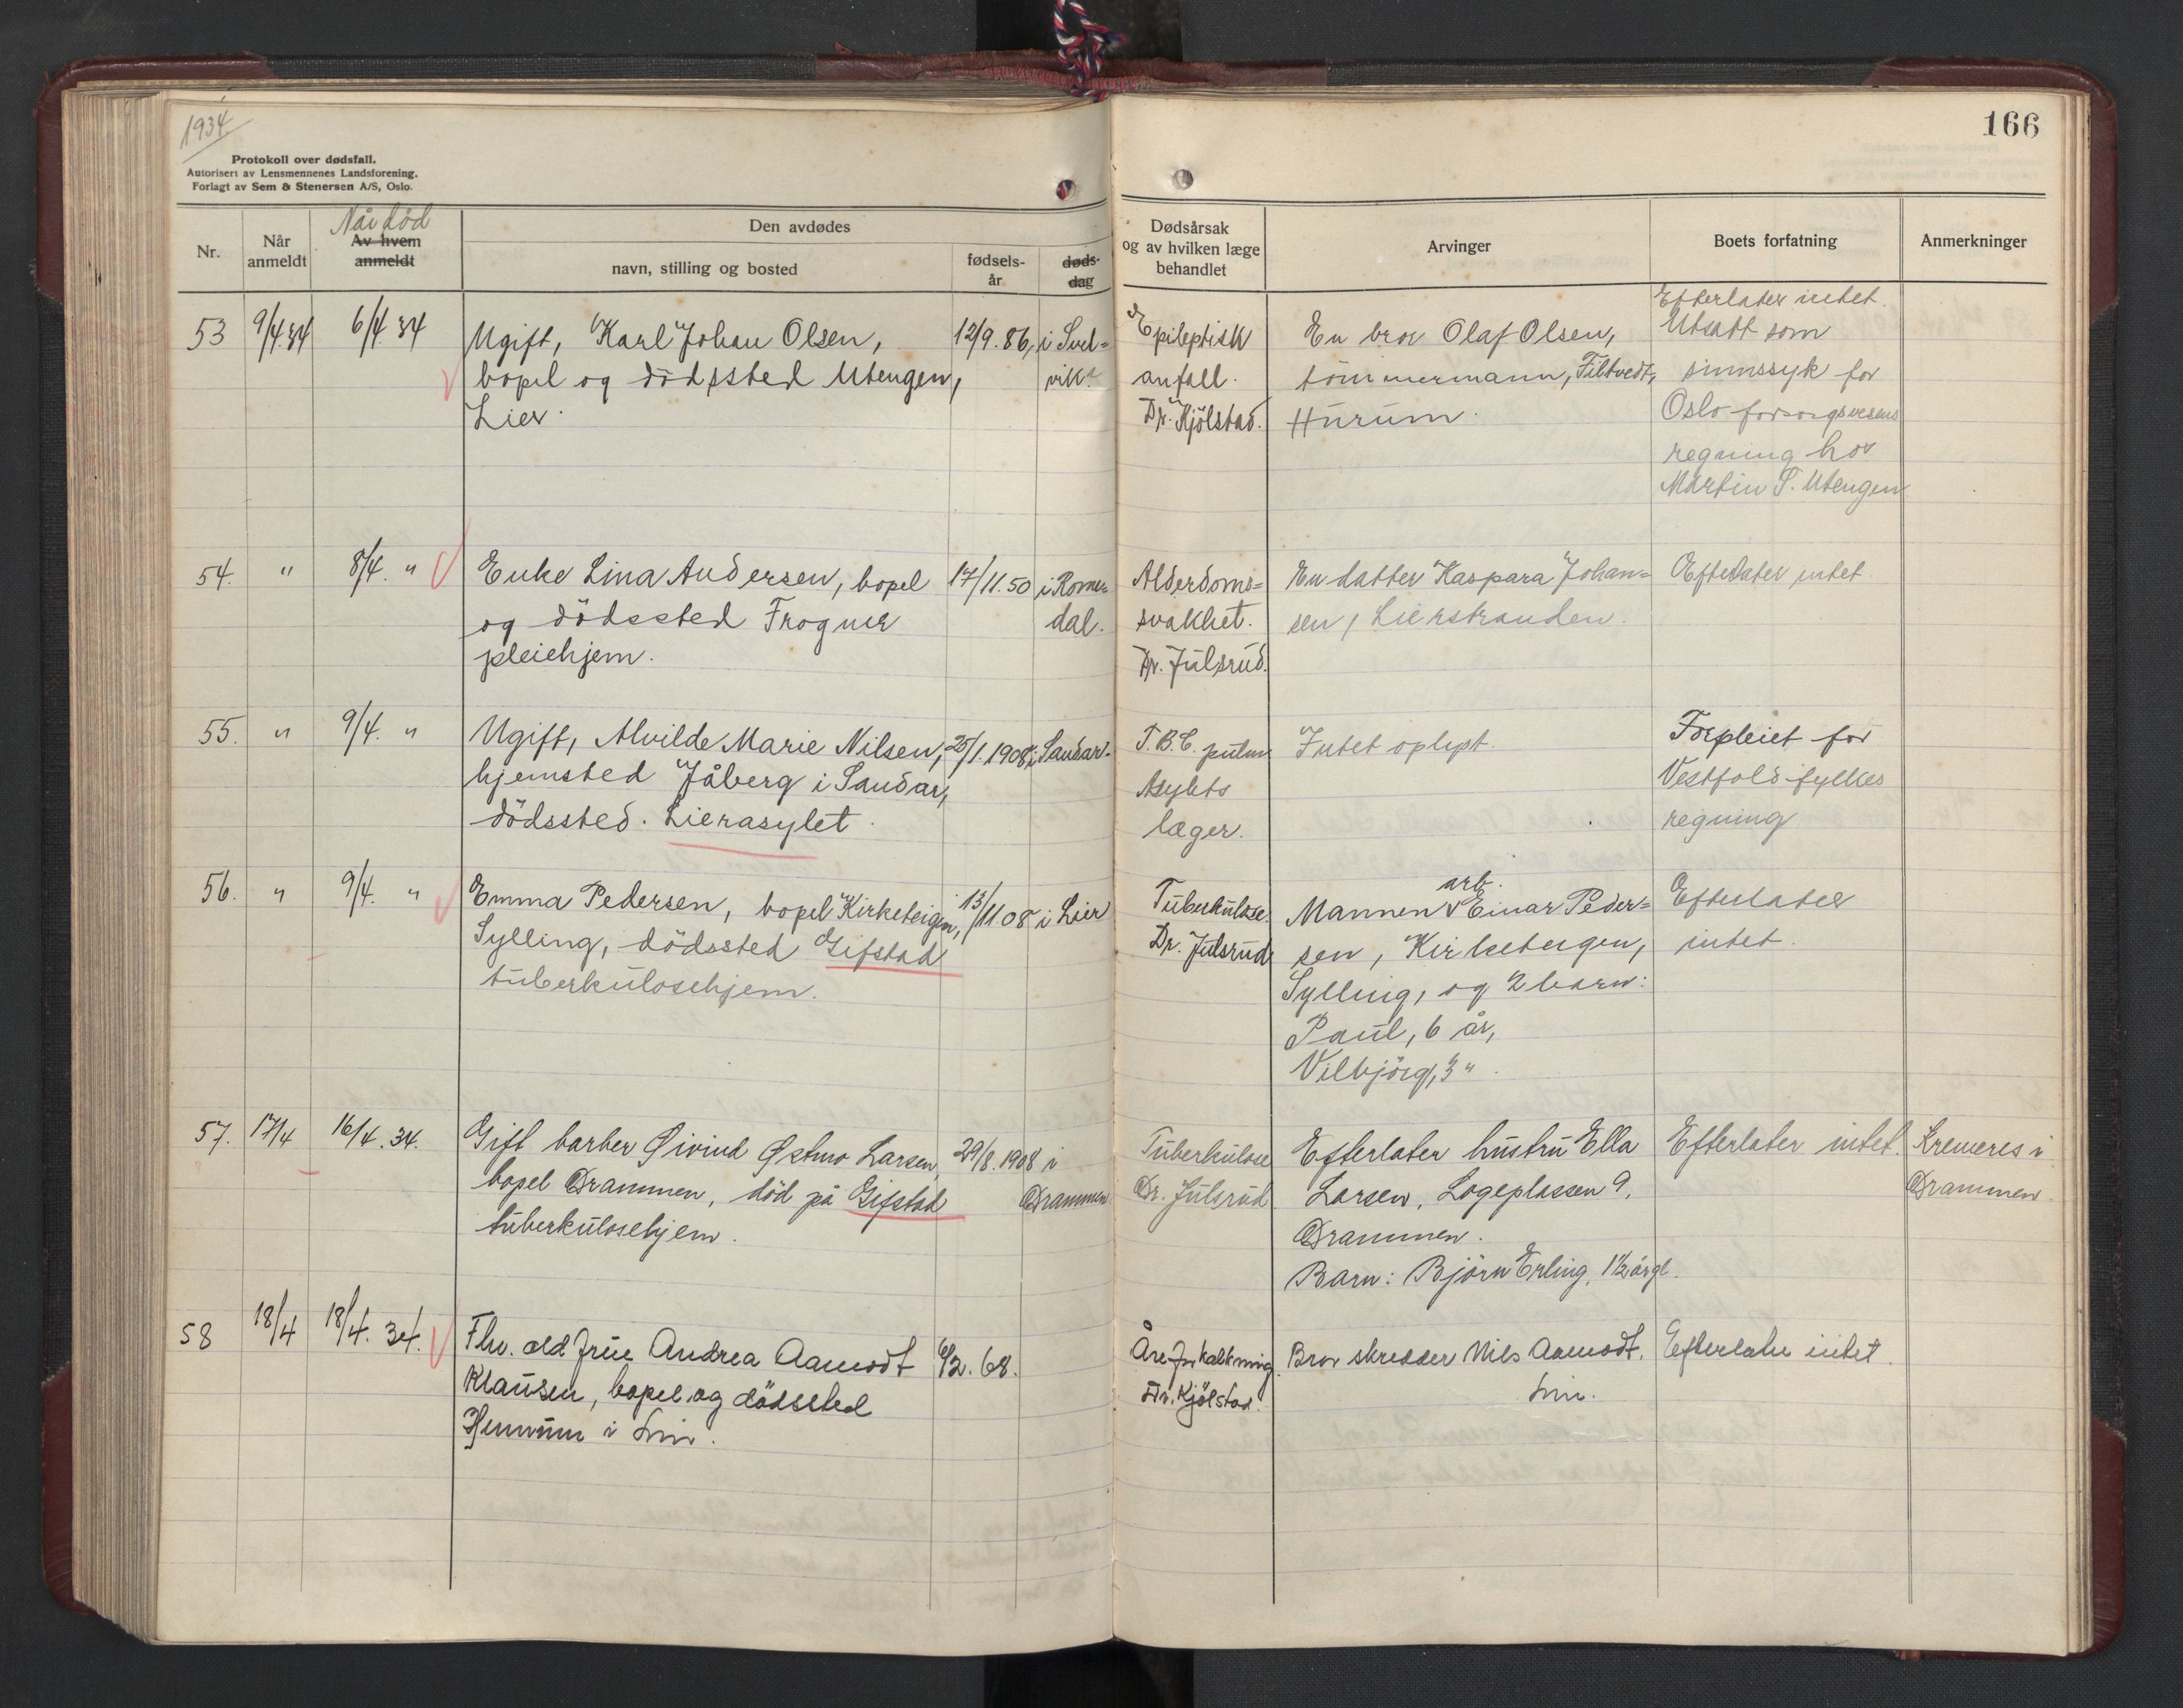 1934
Protokoll over dødsfall.
Autorisert av Lensmennenes Landsforening.
Forlagt av Sem & Stenersen A/S, Oslo.
166
Nr.
Når
anmeldt
Når død
Av hvem
anmeldt
Den avdødes
navn, stilling og bosted
fødsels-
år
døds-
dag
Dødsårsak
og av hvilken læge
behandlet
Arvinger
Boets forfatning
Anmerkninger
53 9/4.34 6/4.34
Ugift, Karl Johan Olsen,
bopel og dödssted Utengen,
Lier.
12/9.86, i Svel=
vik.
Epileptisk
anfall.
Dr. Kjölstad.
En bror Olaf Olsen,
tömmermann, Filtvedt,
Hurum.
Efterlater intet.
Utsatt som
sinnssyk for
Oslo forsorgsvesens
regning hos
Martin S. Utengen
54. " 8/4. "
Enke Lina Andersen, bopel
og dödssted Frogner
pleiehjem.
17/11.50 i Roms=
dal.
Alderdoms=
svakhet.
Dr. Julsrud.
En datter Kaspara Johan=
sen, Lierstranden.
Efterlater intet.
55. " 9/4. "
Ugift, Alvilde Marie Nilsen,
hjemsted Jåberg i Sandar,
dödssted. Lierasylet.
25/1.1908 i Sandar.
T.B.C. pulm
Asylets
læger.
Intet oplyst.
Forpleiet for
Vestfold fylkes
regning
56. " 9/4. "
Emma Pedersen, bopel Kirketeigen,
Sylling, dödssted Gifstad
tuberkulosehjem.
13/11 08 i Lier
Tuberkulose.
Dr. Julsrud
arb.
Mannen v Einar Peder=
sen, Kirketeigen,
Sylling, og 2 barn:
Paul, 6 år,
Vilbjörg, 3 ".
Efterlater
intet.
57. 17/4 16/4.34.
Gift barber Øivind Østmo Larsen,
bopel Drammen, död på Gifstad
tuberkulosehjem.
29/8.1908 i
Drammen
Tuberkulose
Dr. Julsrud
Efterlater hustru Ella
Larsen, Logeplassen 9.
Drammen.
Barn: Björn Erling, 1½ årgl.
Efterlater intet.
Kremeres i
Drammen.
58 18/4 18/4. 34.
Fhv. oldfrue Andrea Aamodt
Klausen, bopel og dödssted
i Lier.
6/2. 68.
Åreforkalkning
Dr. Kjölstad.
Bror skredder Nils Aamodt.
Lier.
Efterlater intet.